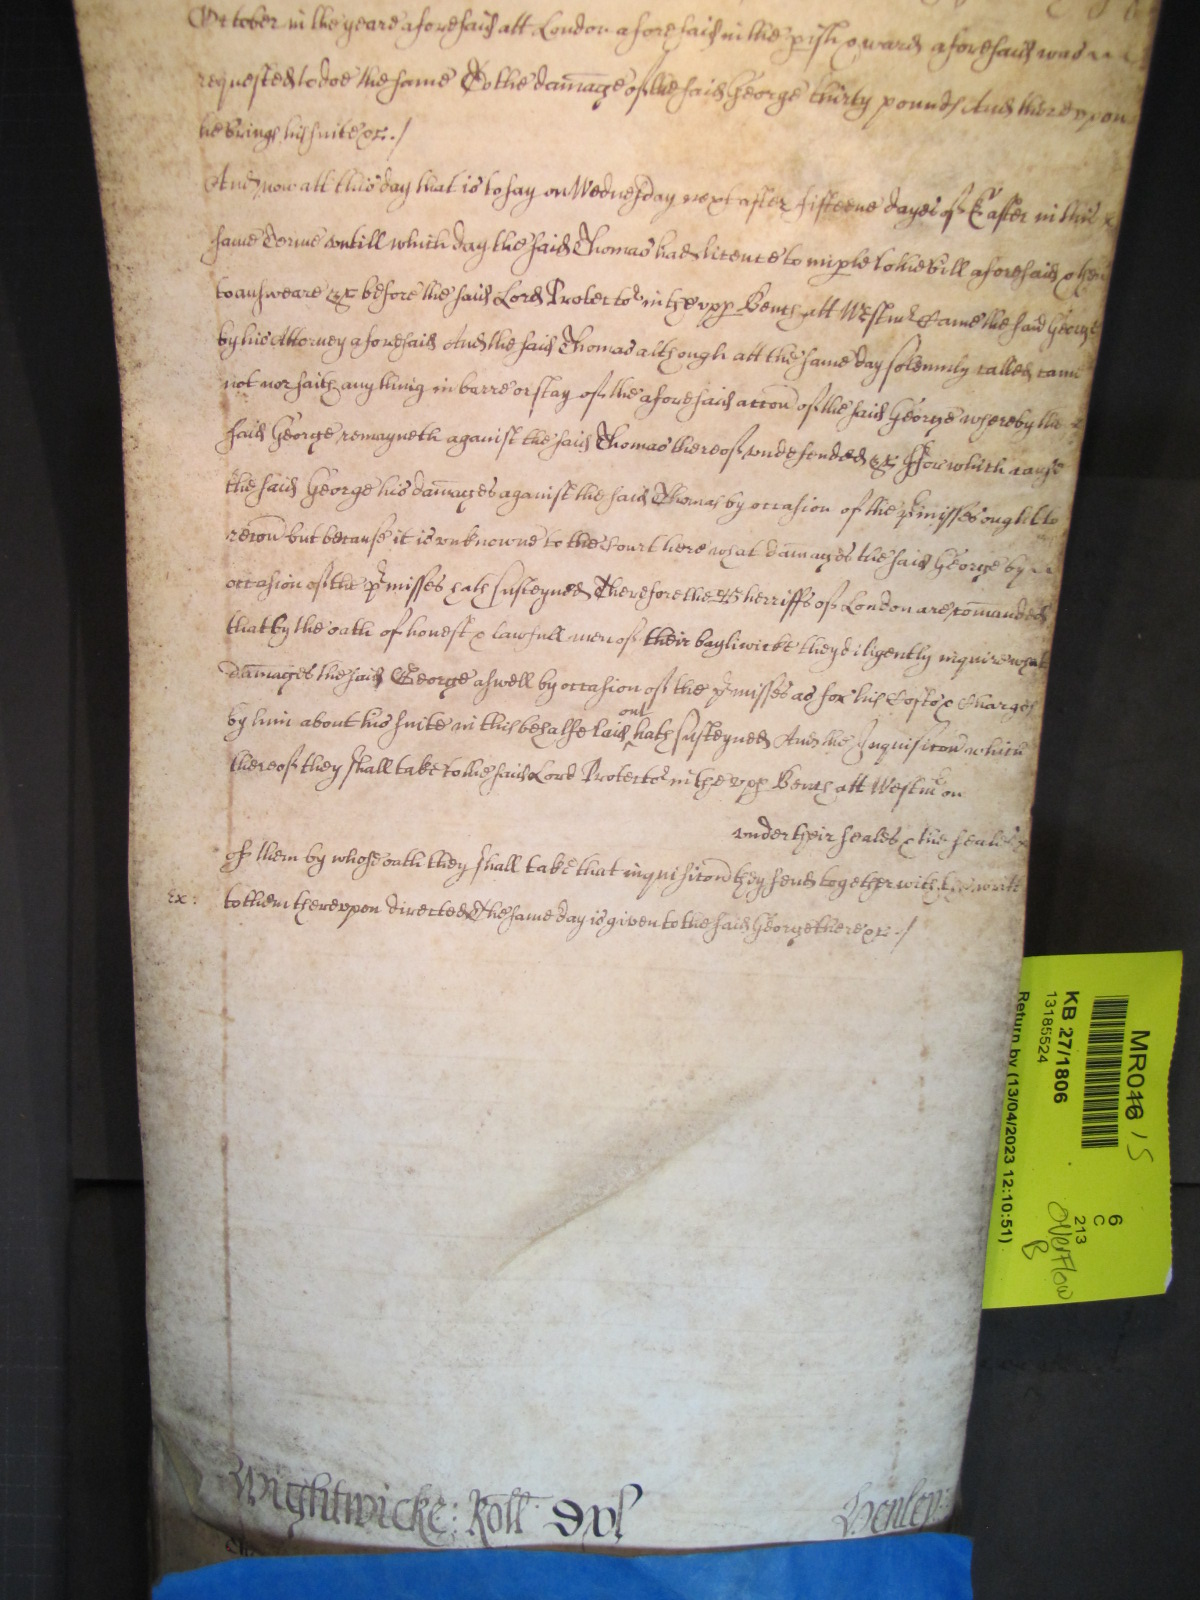 October in the yeare aforesaid att London aforesaid in the pish & ward aforesaid was
requested to doe the same To the damage of the said George thirty pounds And thereupon
he brings his suite &c ./
And now att this day that is to say on Wednesday next after fifteene dayes of Easter in this
same Terme untill which day the said Thomas had licence to imple to the bill aforesaid & then
to answeare &c before the said Lord Protector in the upp Bench att Westmr Came the said George
by his Attorney aforesaid And the said Thomas although att the same day solemnly called came
not nor saith any thing in barre or stay of the aforesaid accon of the said George whereby the
said George remayneth against the said Thomas thereof undefended &c ffor which cause
the said George his damages against the said Thomas by occasion of the pmisses ought to
recou but because it is unknowne to the Court here what damages the said George by
occasion of the pmisses hath susteyned Therefore the Sherriffs of London are comanded
that by the oath of honest & lawfull men of their bayliwicke they diligently inquire what
damages the said George aswell by occasion of the pmisses as for his Costs & Charges
by him about his suite in this behalfe laid out hath susteyned And the Inquisicon which
thereof they shall take to the said Lord Protector in the upp Bench att Westmr on
under their seales & the seales
of them by whose oath they shall take that inquisicon they send together with the writt
Ex: to them thereupon directed The same day is given to the said George there &c ./
Wightwicke: Roll
Henley:
MR046 15
KB 27/1806
13185524
Return by (13/04/2023 12:10:51)
6
C
213
OVERFLOW
B